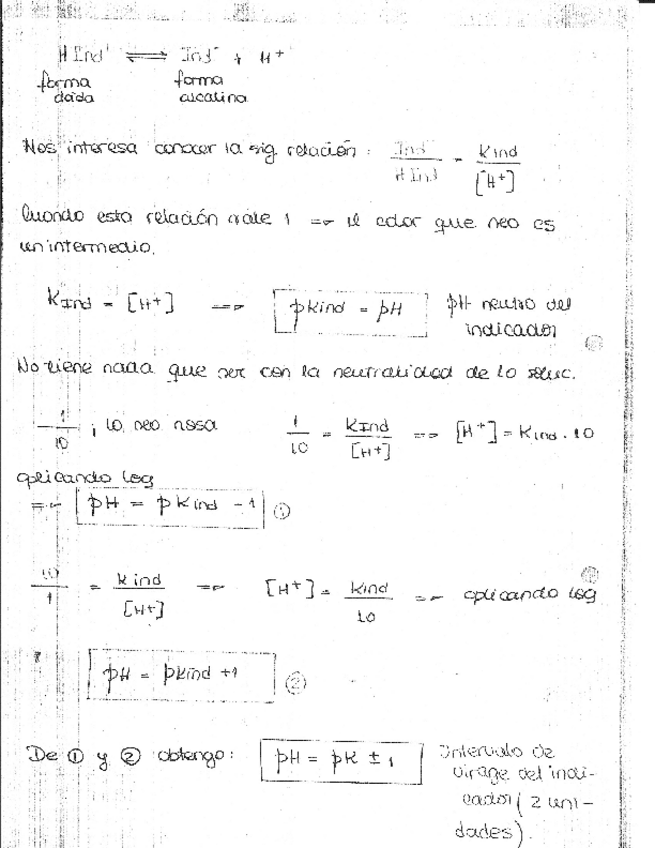 HInd ⇌ Ind⁻ + H⁺
forma ácida forma alcalina
Nos interesa conocer la sig. relación: Ind⁻/HInd = Kind/[H⁺]
Cuando esta relación vale 1 => el color que veo es
un intermedio.
KInd = [H⁺] => pKind = pH pH neutro del indicador
No tiene nada que ver con la neutralidad de la soluc.
- 1/10 ; lo veo rosa 1/10 = KInd/[H⁺] => [H⁺] = Kind . 10
aplicando log
=> pH = pKind - 1 ①
10/1 = Kind/[H⁺] => [H⁺] = Kind/10 => aplicando log
pH = pKind + 1 ②
De ① y ② obtengo: pH = pK ± 1 Intervalo de
virage del indi-
cador (2 uni-
dades).